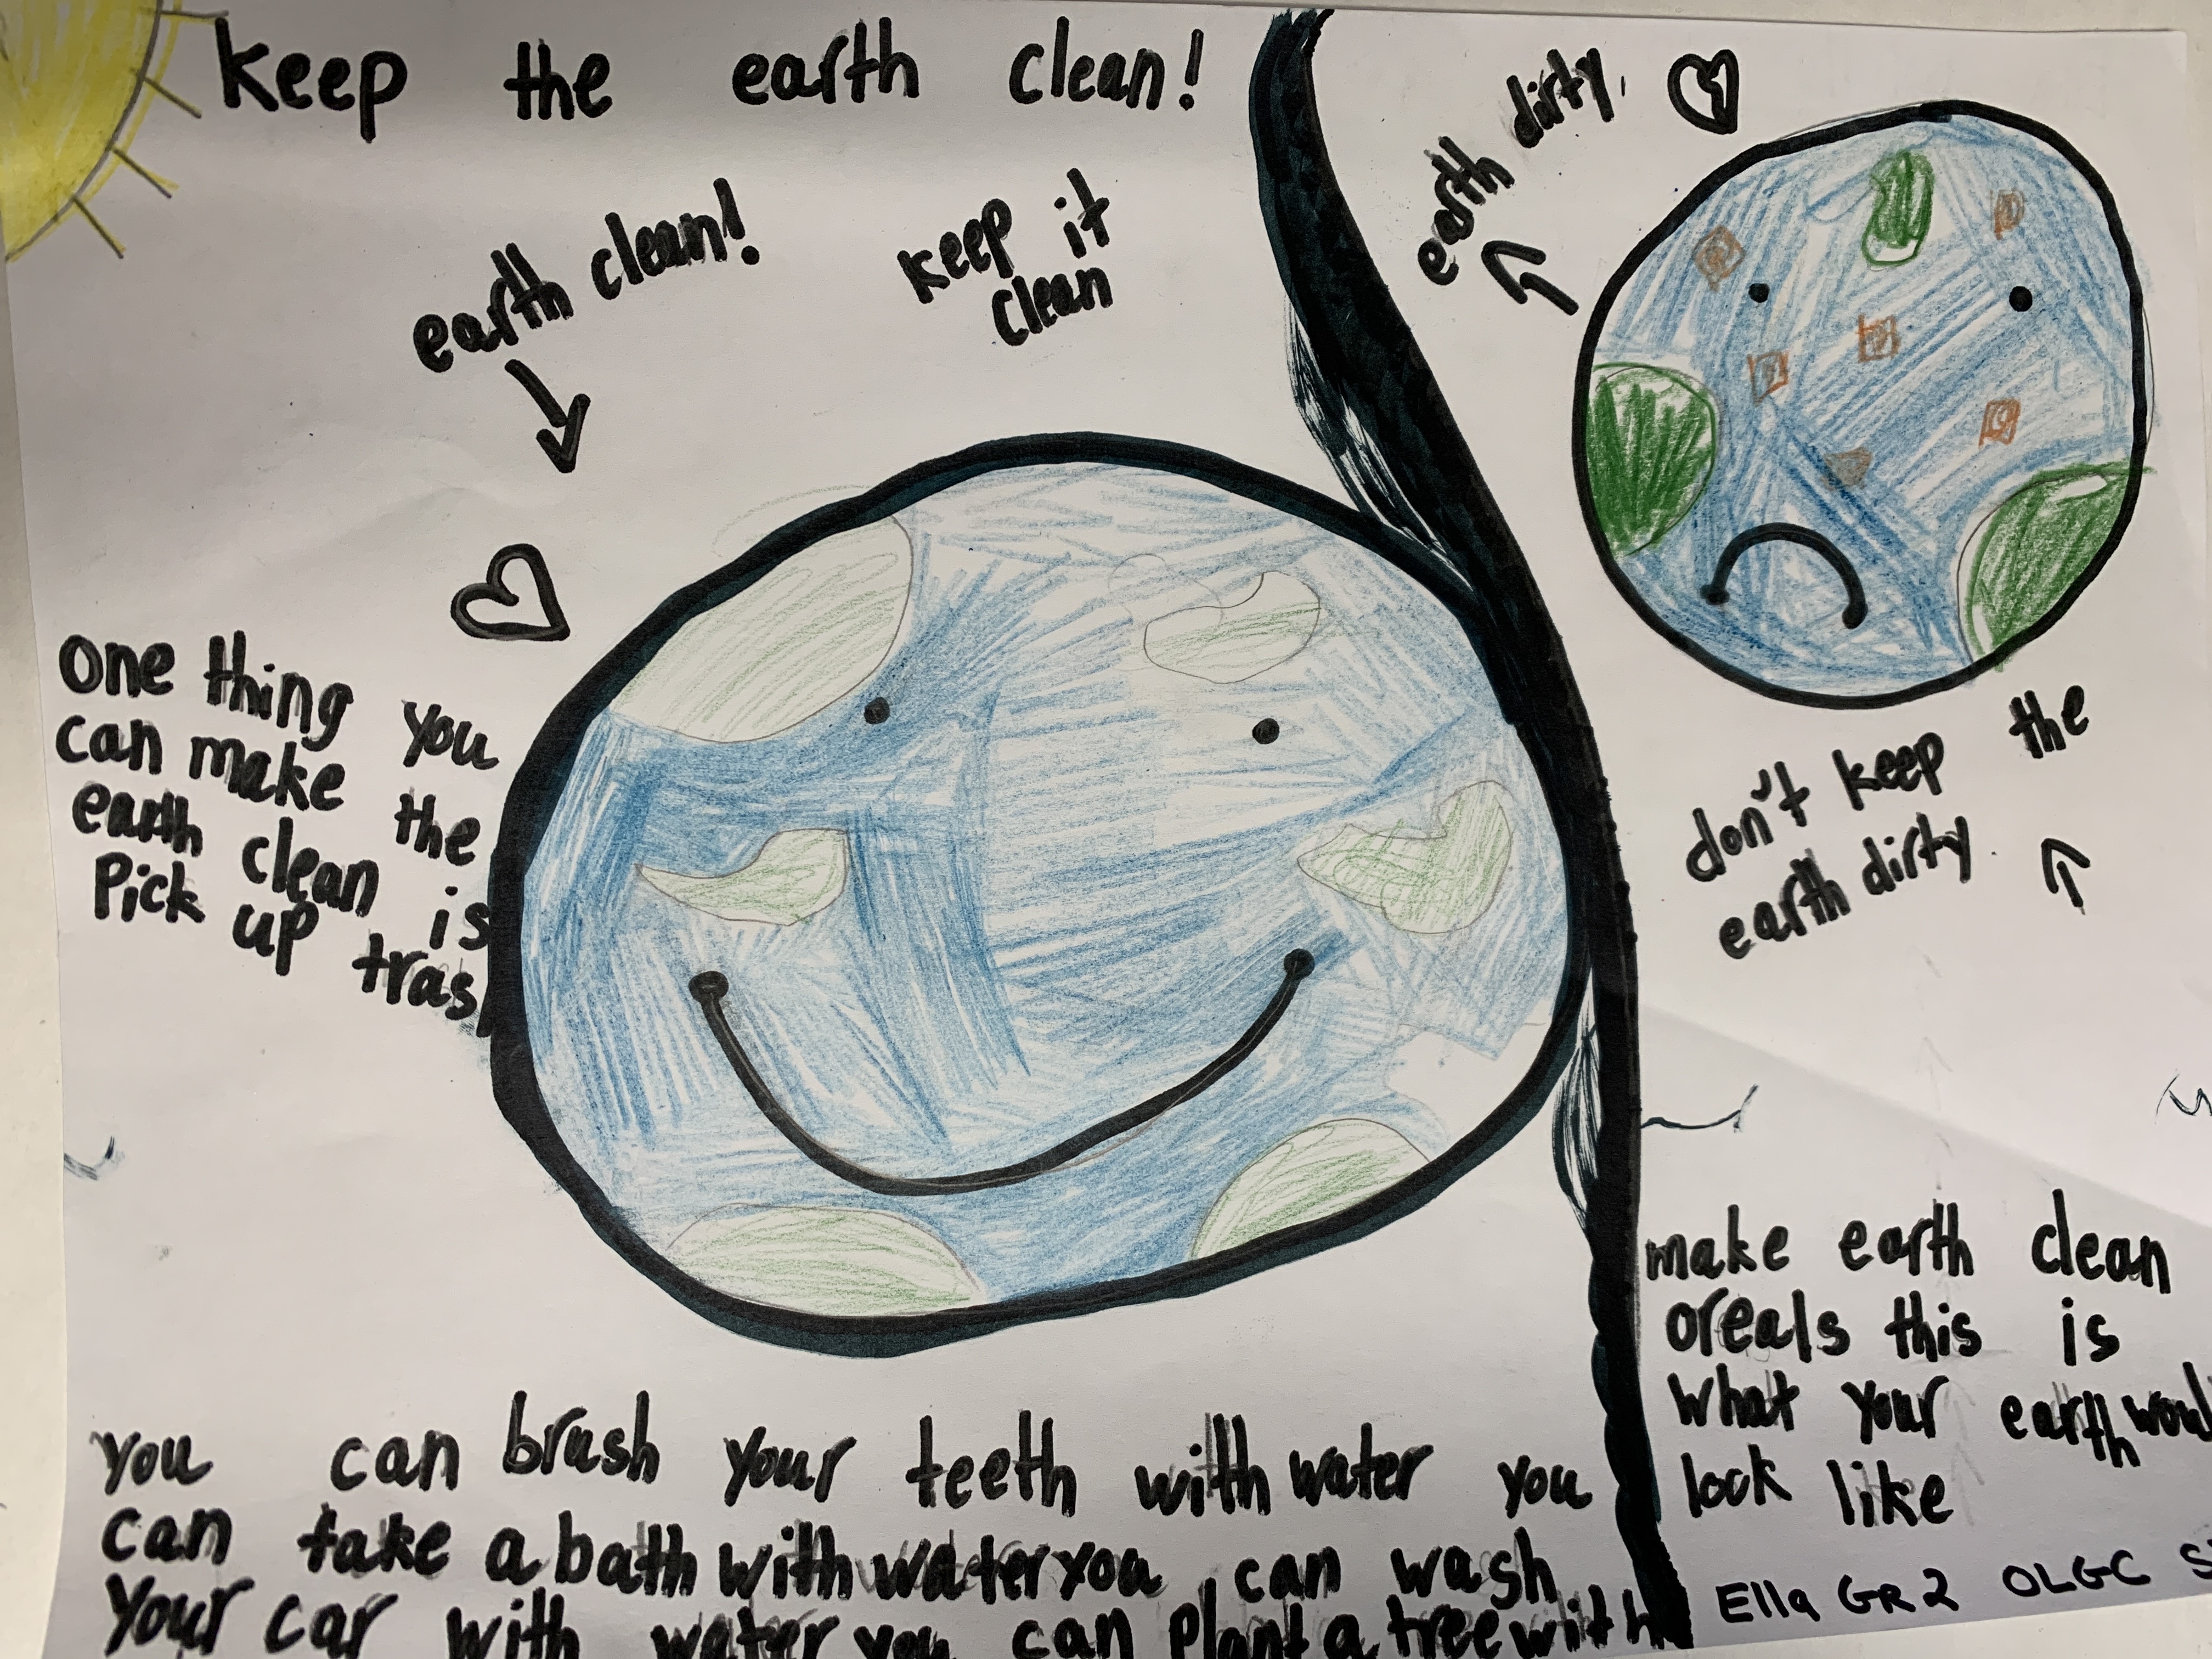 keep the earth clean!
earth clean!
keep it
clean
One thing you
can make the
earth clean is
Pick up tras
you can brush your teeth with water you
can take a bath with water you can wash
your car with water you can plant a tree with
earth dirty.
don't keep the
earth dirty.
make earth clean
oreals this is
what your earth woul
look like
Ella GR2 OLGC S